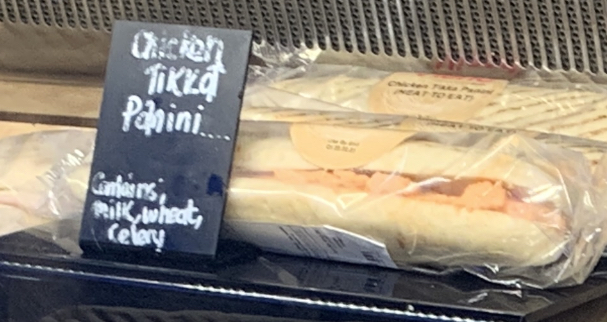 Chicken
Tikka
Panini....
Contains;
milk, wheat,
celery
Chicken Tikka Panini
(HEAT TO EAT)